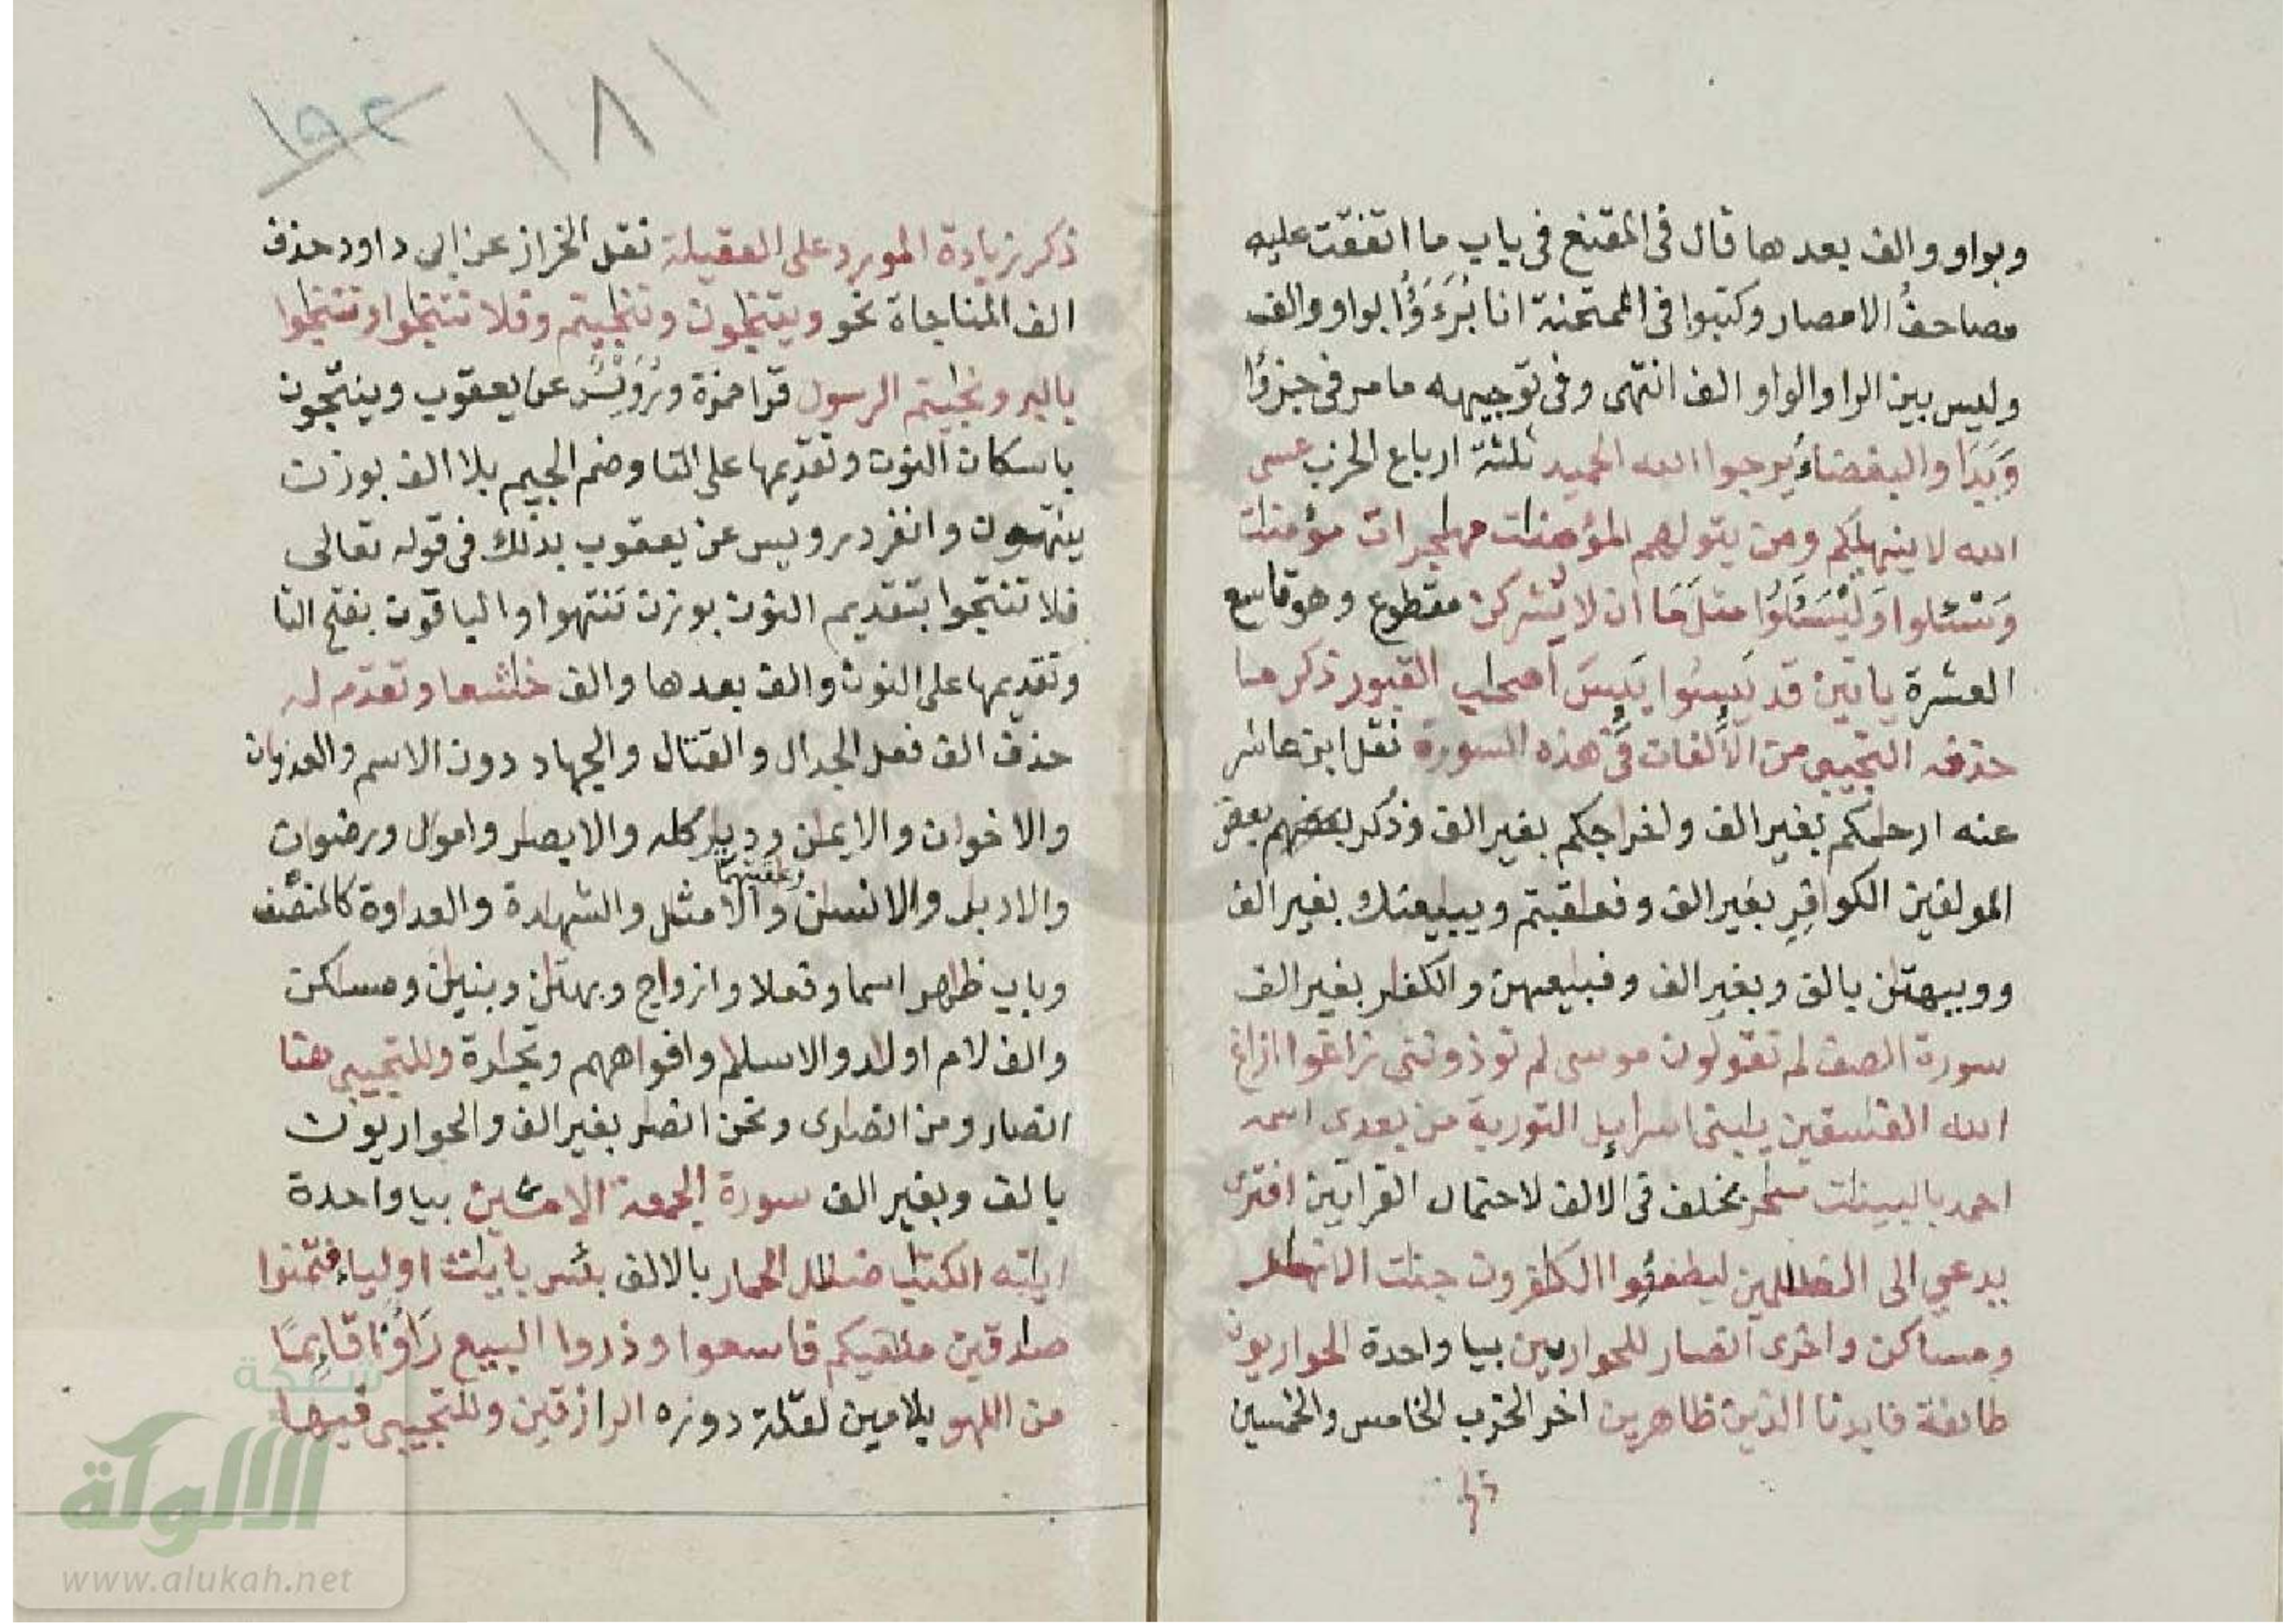 وبواو والف بعدها قال فى المقنع فى باب ما اتفقت عليه
مصاحف الامصار وكتبوا فى الممتحنة انا بُرَءَٰؤُا بواو والف
وليس بين الرا والواو الف انتهى وفى توجيهه ما مر فى جزؤا
وَبَدَا والبغضاءُ يرجوا الله الحميد ثلثة ارباع الحزب عسى
الله لا ينهىٰكم ومن يتولهم المؤمنٰت مهٰجرات مؤمنٰت
وَسْئلوا وَلْيَسْئَلُوا مثل مَا ان لا يُشركن مقطوع وهو تاسع
العشرة ياتين قد يَئِسُوا يَئِسَ اصحٰب القبور ذكر ما
حذفه التجيبى من الألفات فى هذه السورة نقل ابن عاشر
عنه ارحٰمكم بغير الف ولخراجكم بغير الف وذكر بعضهم بعض
المولفين الكوافِرِ بغير الف وفعٰقبتم ويبٰيعنك بغير الف
وو ببهتٰن بالف وبغير الف وفبٰيعهن والكفٰر بغير الف
سورة الصف لم تقولون موسى لم توذوننى زاغوا ازاغ
الله الفٰسقين يٰبنى اسرايل التورية من بعدى اسمه
احمد بالبينٰت سٰحر بخلف فى الالف لاحتمال القرايتين افترى
يدعى الى الظٰلمين ليطفئوا الكٰفرون جنٰت الانهٰر
ومسٰاكن واخرى انصار للحواريين بيا واحدة الحواريون
طائفة فايدنا الذين ظاهرين اخر الحزب الخامس والخمسين
١٨١
١٩٢
ذكر زيادة المورد على العقيلة نقل الخراز عن ابى داود حذف
الف المناجاة نحو ويتنٰجون وتنٰجيتم وفلا تتنٰجوا وتنٰجوا
بالبر ونٰجيتم الرسول قرا حمزة ورُوَيْسٌ عن يعقوب وينتجون
باسكان النون وتقديمها على التا وضم الجيم بلا الف بوزن
ينتهون وانفرد رويس عن يعقوب بذلك فى قوله تعالى
فلا تنتجوا بتقديم النون بوزن تنتهوا والباقون بفتح التا
وتقديمها على النون والف بعدها والف خٰشعا وتقدم له
حذف الف فعل الجدال والقتال والجهاد دون الاسم والعدوٰن
والاخوٰن والايمٰن وديٰر كله والابصٰر واموال ورضوٰن
والادبٰر والانسٰن وعٰقبتهما والامثٰل والشهٰدة والعداوة كالمنصف
وباب ظٰهر اسما وفعلا وازوٰج وبهتٰن وبنيٰن ومسٰكن
والف لام اولٰد والاسلٰم وافواههم وتجٰرة وللتجيبى هنا
انصار ومن انصارى ونحن انصٰر بغير الف والحواريون
بالف وبغير الف سورة الجمعة الامين بيا واحدة
ايٰته الكتٰب ضلٰل الحمار بالالف بئس بايٰت اولياء فتمنوا
صٰدقين ملٰقيكم فاسعوا وذروا البيع رَأَوْا قَايِمًا
من اللهو بلامين لقلة دوره الرازقين وللتجيبى فيها
شبكة
الألوكة
www.alukah.net